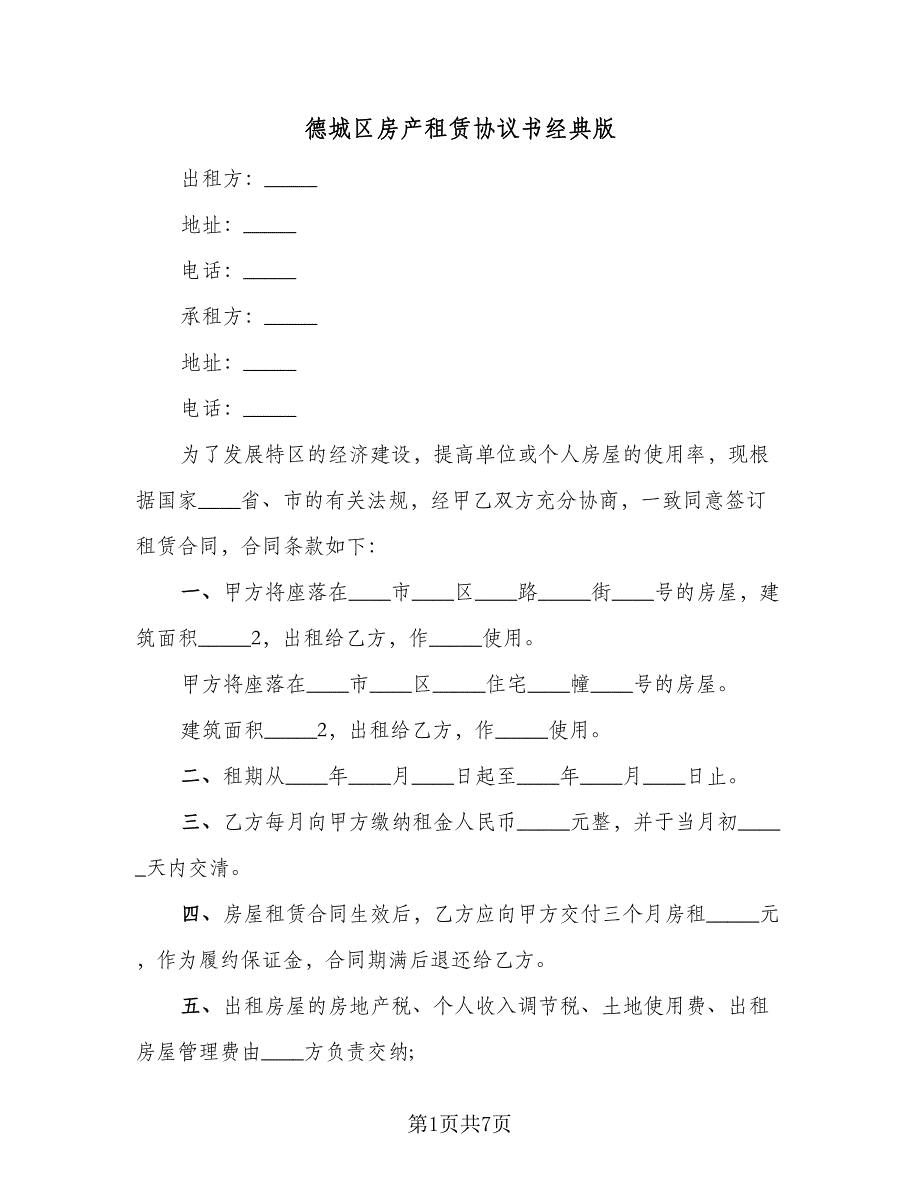 德城区房产租赁协议书经典版
出租方：_____
地址：_____
电话：_____
承租方：_____
地址：_____
电话：_____
为了发展特区的经济建设，提高单位或个人房屋的使用率，现根
据国家____省、市的有关法规，经甲乙双方充分协商，一致同意签订
租赁合同，合同条款如下：
一、甲方将座落在____市____区____路_____街____号的房屋，建
筑面积_____2，出租给乙方，作_____使用。
甲方将座落在____市____区_____住宅____幢____号的房屋。
建筑面积_____2，出租给乙方，作_____使用。
二、租期从____年____月____日起至____年____月____日止。
三、乙方每月向甲方缴纳租金人民币_____元整，并于当月初____
_天内交清。
四、房屋租赁合同生效后，乙方应向甲方交付三个月房租_____元
，作为履约保证金，合同期满后退还给乙方。
五、出租房屋的房地产税、个人收入调节税、土地使用费、出租
房屋管理费由____方负责交纳;
第1页共7页